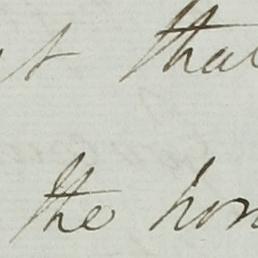 that
the hon